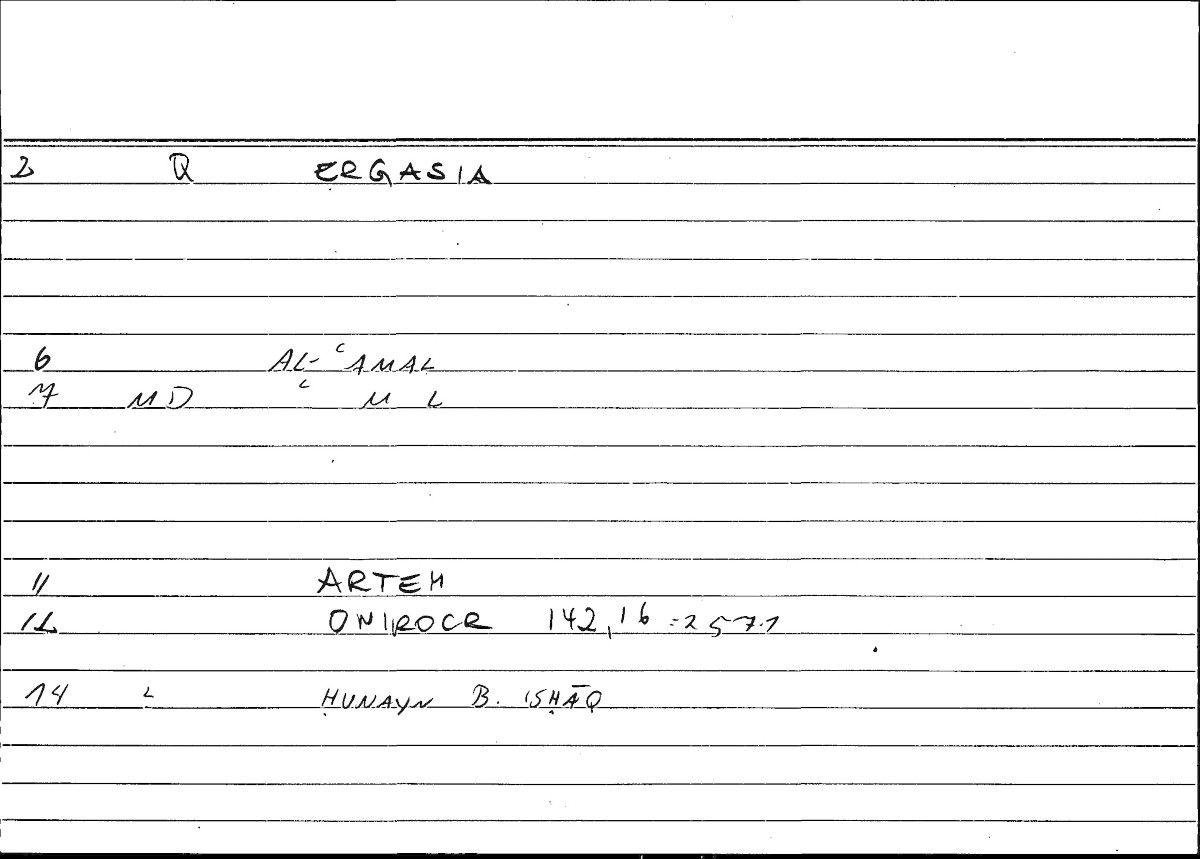 2 Q ERGASIA
6 AL-ʿAMAL
7 MD ʿ M L
11 ARTEM
12 ONIROCR 142,16 =257.1
14 2 ḤUNAYN B. ISḤĀQ